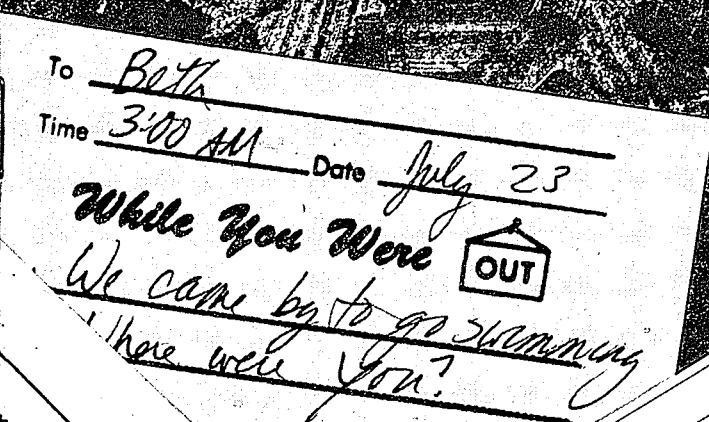 To Beth
Time 3:00 AM Date July 23
While You Were OUT
We came by to go swimming
Where were you?